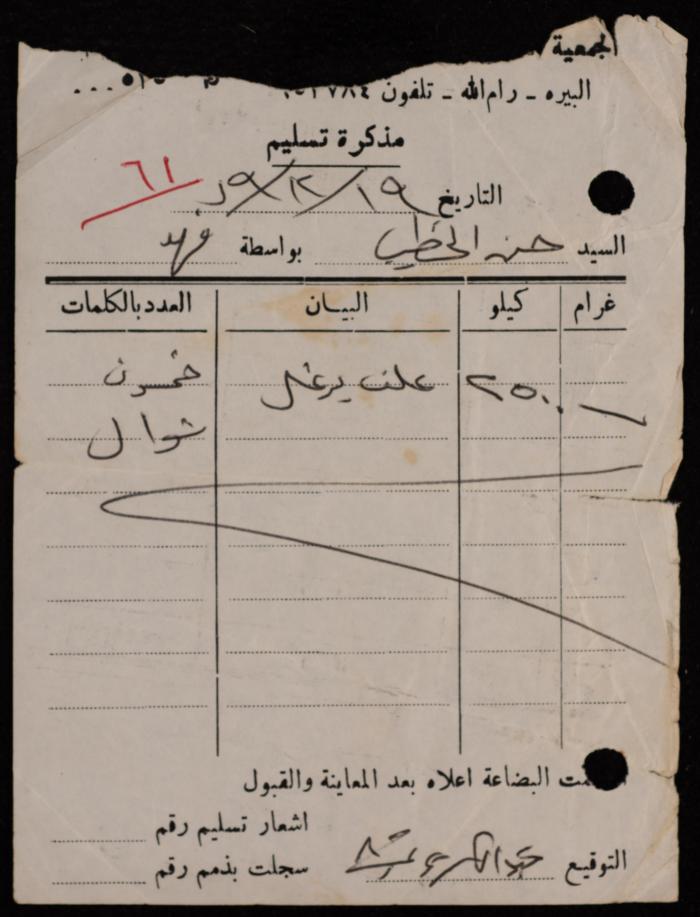 الجمعية
البيره - رام الله - تلفون ٩٥٢٧٨٤
مذكرة تسليم
٦١
التاريخ ١٩/١٢/٨٩
السيد حسن الخطيب بواسطة فهد
غرام كيلو البيــان العدد بالكلمات
— ٢٥٠٠ علف برغل خمسون
شوال
استلمت البضاعة اعلاه بعد المعاينة والقبول
اشعار تسليم رقم
التوقيع عبد الكريم
سجلت بذمم رقم